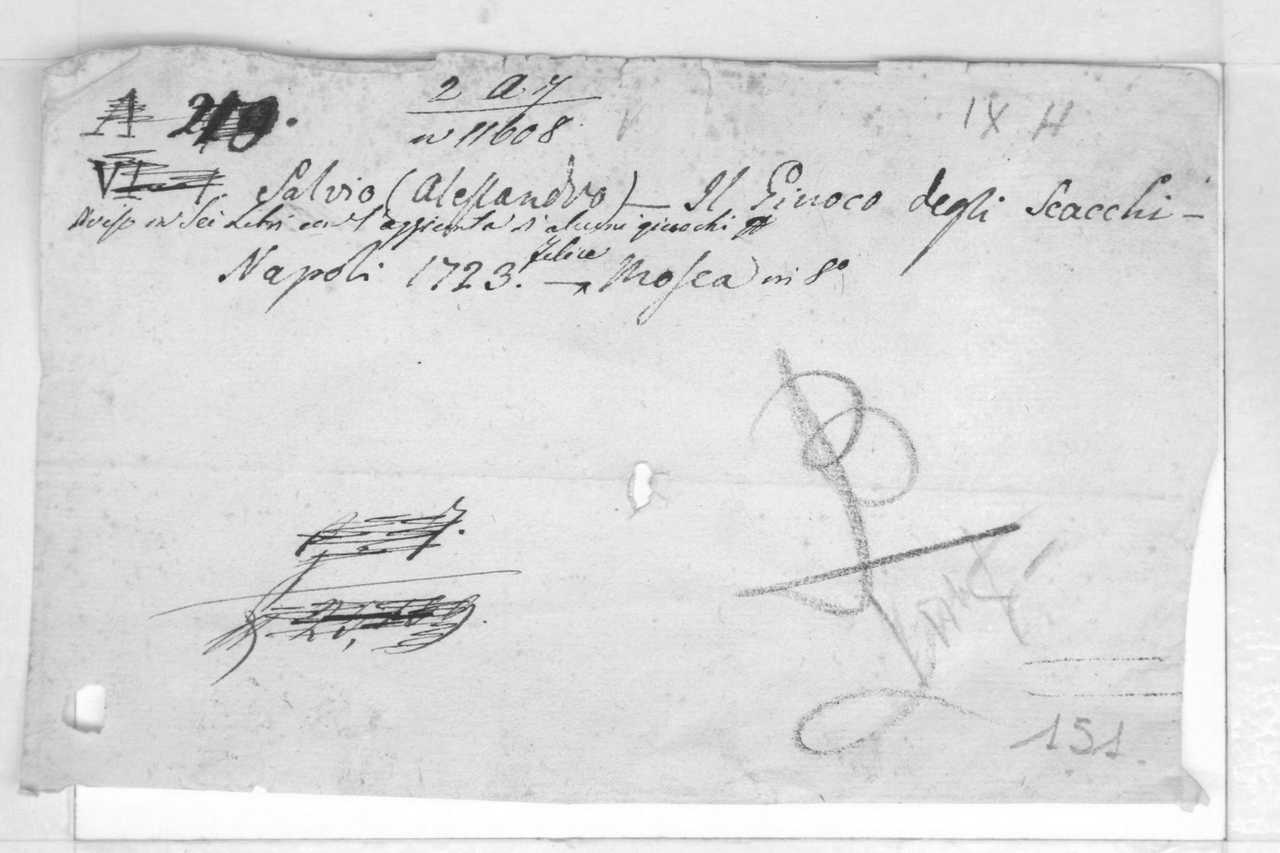 A 219.
2 A. 7
n° 11608
IX H
Salvio (Alessandro) — Il Giuoco degli Scacchi —
Diviso in Sei Libri con l'aggiunta di alcuni giuochi
Napoli 1723. — Felice Mosca in 8°
151.